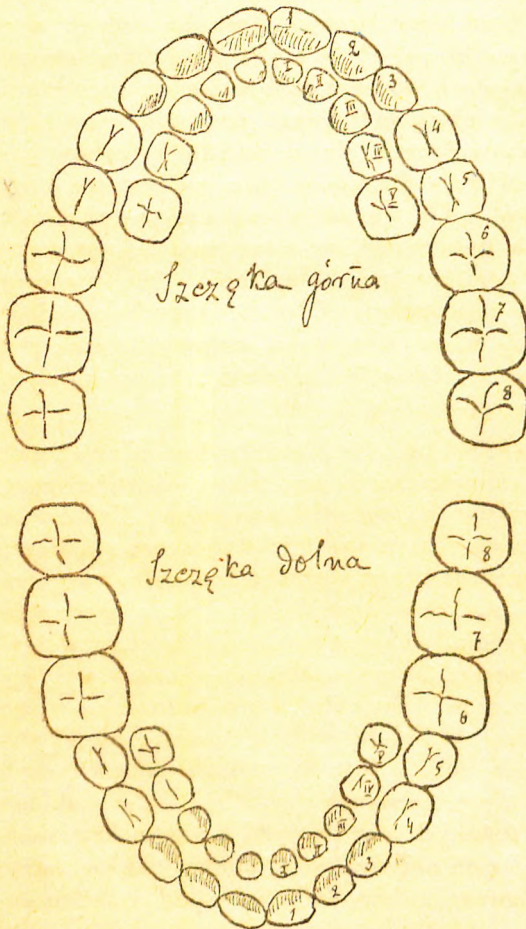 1
2
3
4
5
6
7
8
I
II
III
IV
V
Szczęka górna
Szczęka dolna
8
7
6
5
4
3
2
1
V
IV
III
II
I